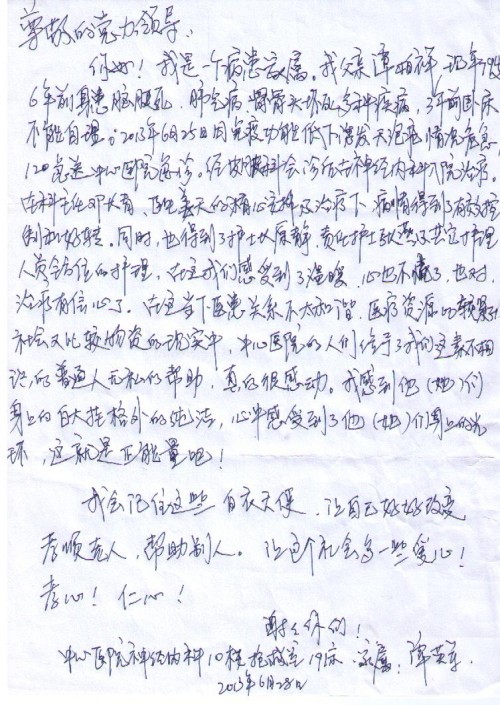 尊敬的党办领导:
你好!我是一个病患家属。我父亲谭相祥
6年前身患脑梗死、肺气病、髂骨头坏死多种疾病,3年前卧床
不能自理。2013年6月25日因免疫功能低下诱发天疱疮情况危急,
120急送中心医院急诊。经皮肤科会诊后去神经内科入院治疗。
在科主任邓长青、的精心主持及治疗下,病情得到了有效控
制和好转。同时,也得到了护士长、责任护士及其它护理
人员全方位的护理,在这我们感受到了温暖,心也不慌了,也对
治疗有信心了。在这当下医患关系不太和谐,医疗资源比较紧张
社会又比较物资的现实中,中心医院的人们给予了我们这素不相
识的普通人无私的帮助,真的很感动。我感到他(她)们
身上的白大挂格外的纯洁,心中感受到了他(她)们身上的光
环,这就是正能量吧!
我会记住这些白衣天使,让自己好好改变
孝顺老人,帮助别人。让这个社会多一些爱心!
孝心!仁心!
谢谢你们!
中心医院神经内科10楼抢救室19床 家属:谭
2013年6月28日